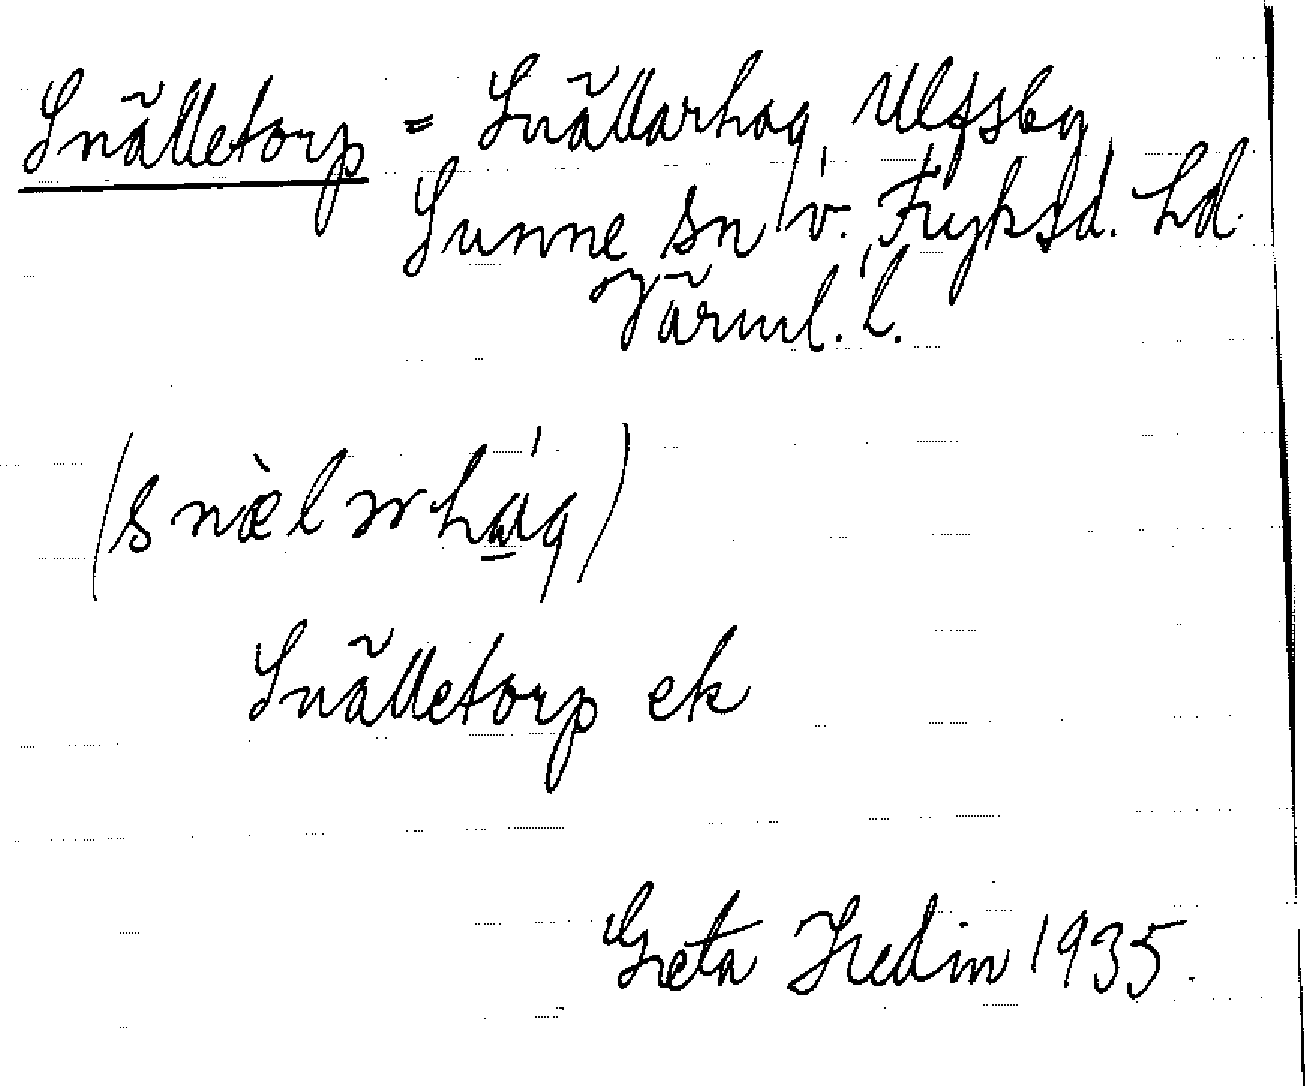 Snälletorp = Snällarhag, Ulfsby
Sunne sn v. Fryksd. hd.
Värml. l.
(snæ̀l ɤr hág)
Snälletorp ek
Greta Hedin 1935.